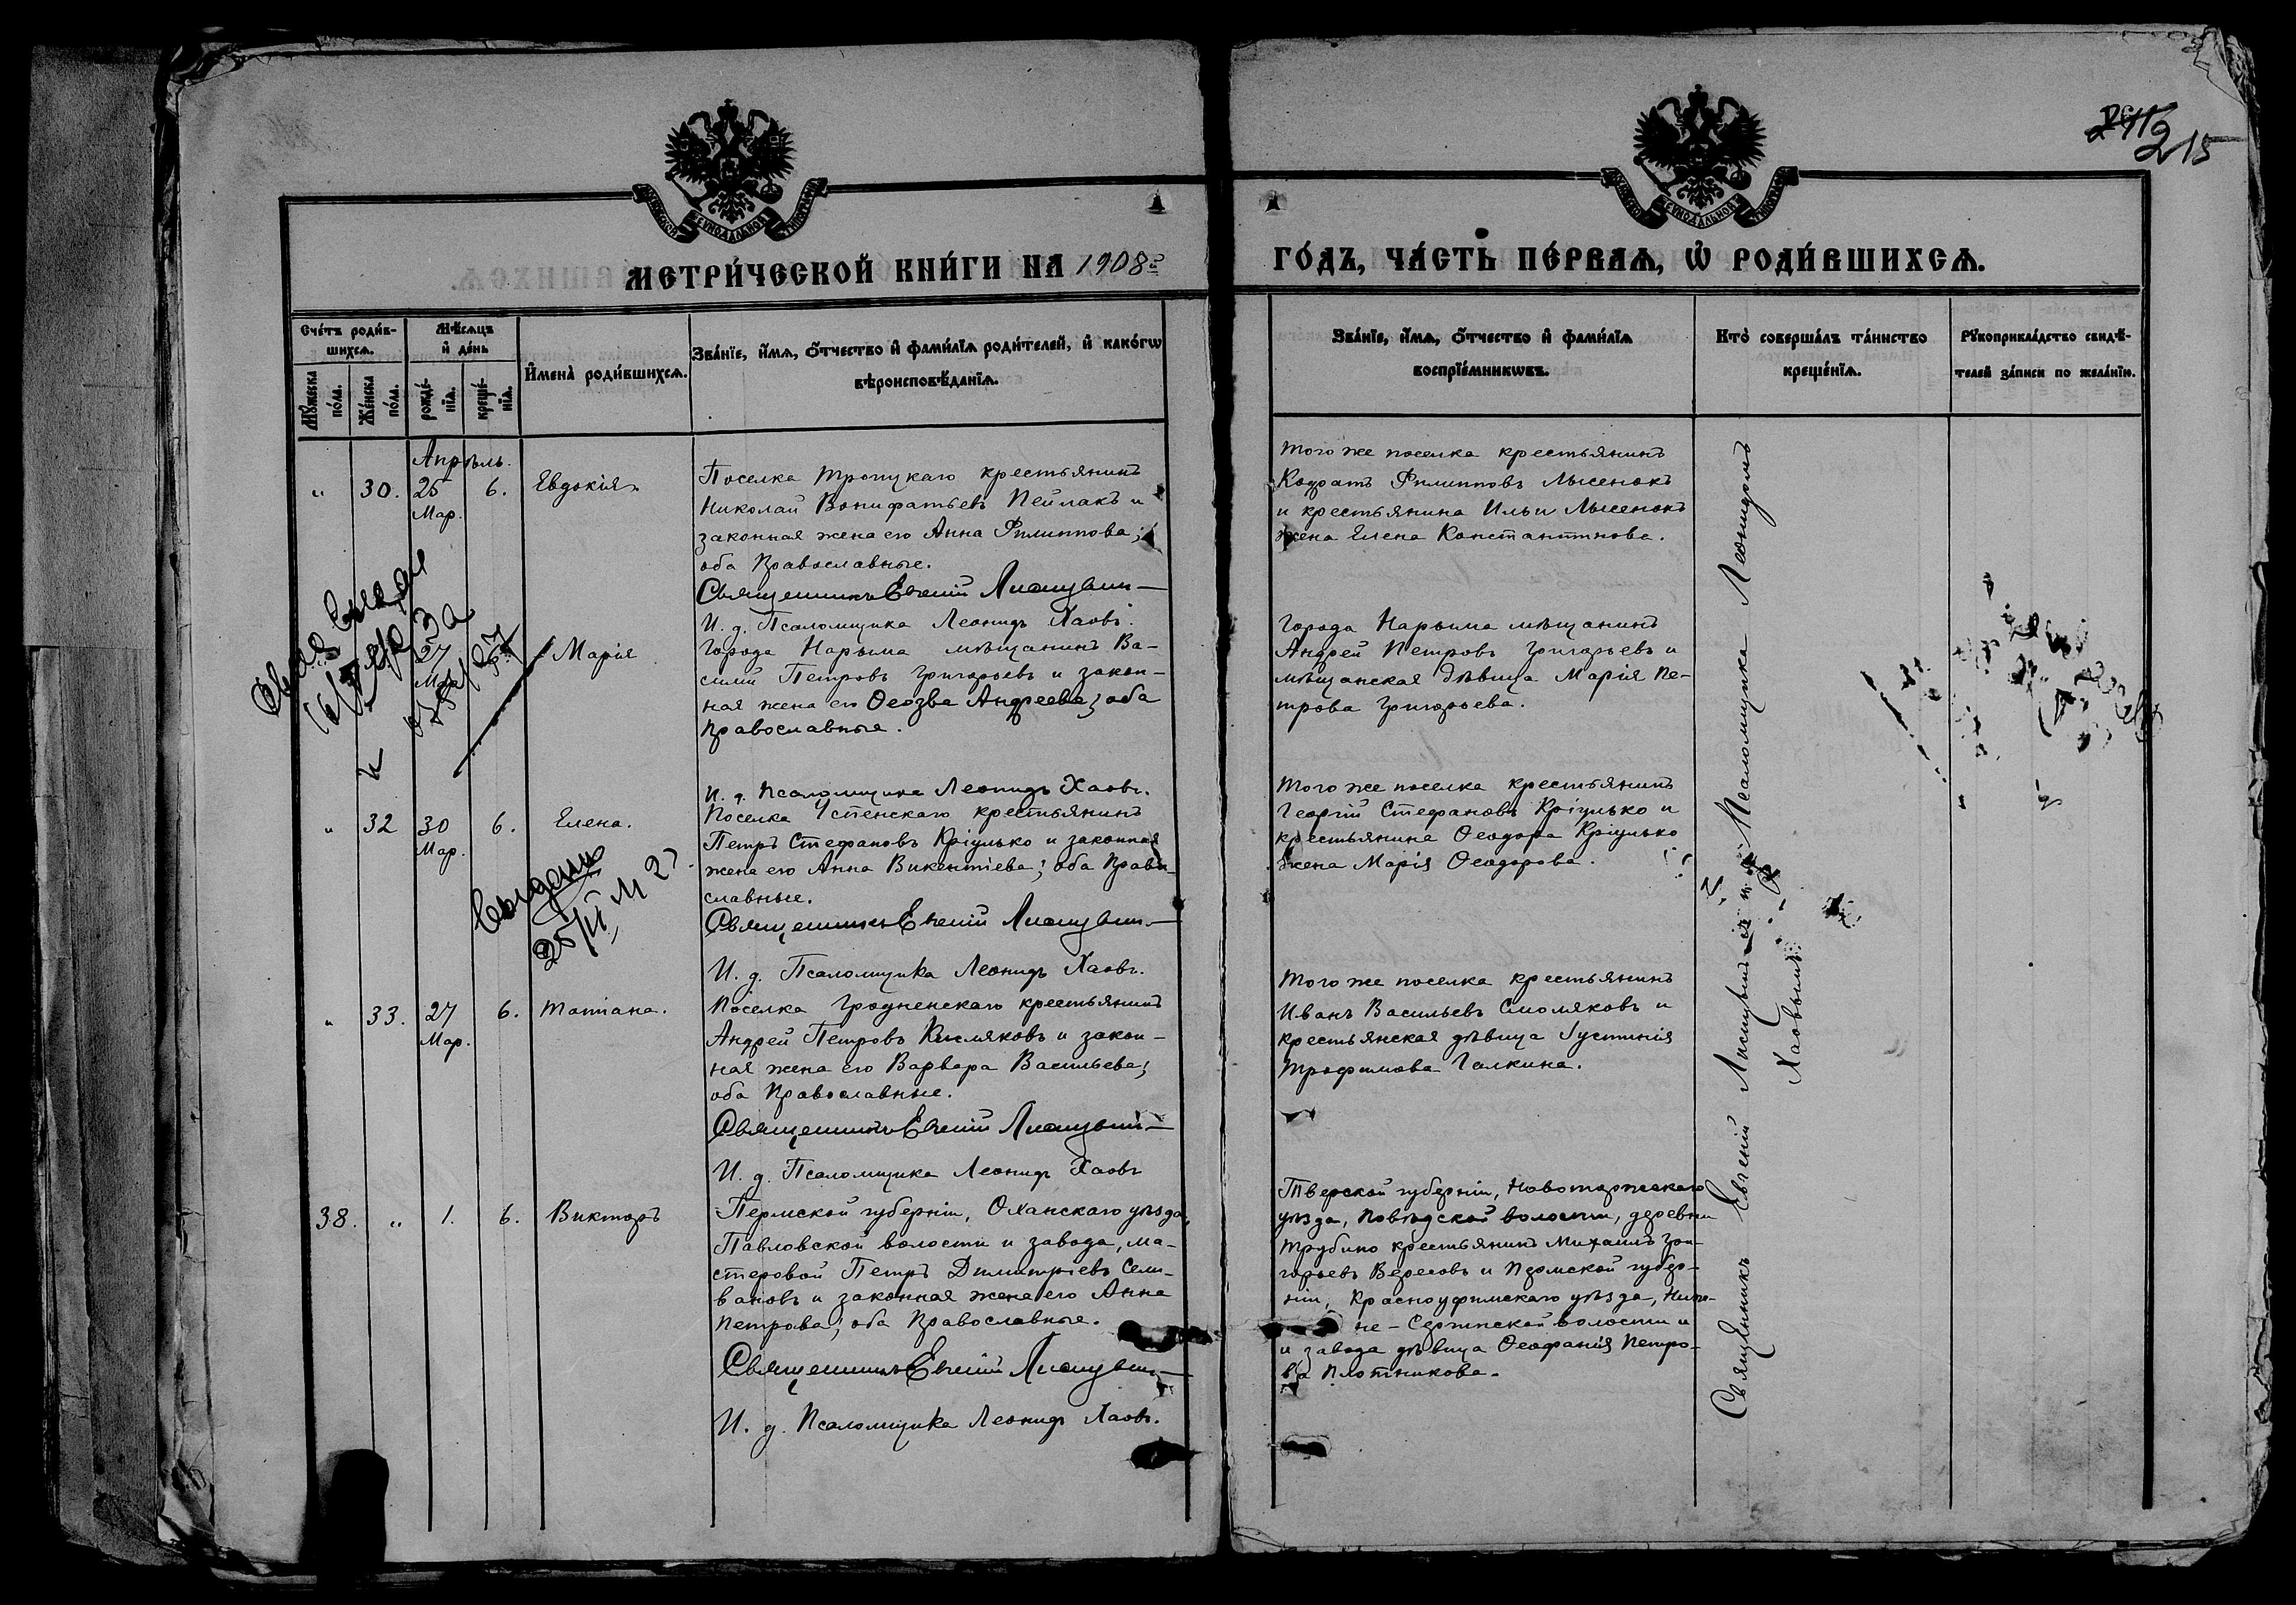 215
МЕТРИ́ЧЕСКОЙ КНИ́ГИ НА 1908й
ГО́ДЪ, ЧА́СТЬ ПЕ́РВАѦ, Ѡ҆ РОДИ́ВШИХСѦ.
Сче́тъ роди́в-
шихсѧ.
Мꙋ́жеска по́ла.
Же́нска по́ла.
Мѣ́сѧцъ
и҆ де́нь
рожде́-
нїѧ.
креще́-
нїѧ.
И҆мена̀ роди́вшихсѧ.
Зва́нїе, и҆́мѧ, ѻ҆́тчество и҆ фами́лїѧ роди́телей, и҆ како́гѡ
вѣроисповѣ́данїѧ.
Зва́нїе, и҆́мѧ, ѻ҆́тчество и҆ фами́лїѧ
воспрїе́мникѡвъ.
Кто̀ соверша́лъ та́инство
креще́нїѧ.
Рꙋкоприкла́дство свидѣ́-
телей за́писи по жела́нїю.
Апрѣль.
" 30. 25 6. Евдокія.
Мар.
Поселка Троицкаго крестьянинъ
Николай Вонифатьевъ Пейлакъ и
законная жена его Анна Филиппова;
оба Православные.
Священникъ Евгеній
И. д. Псаломщика Леонидъ Хаовъ.
Того же поселка крестьянинъ
Кодратъ Филипповъ Лысенокъ
и крестьянина Ильи Лысенокъ
жена Елена Константинова.
27
Мар.
Марія
Города Нарыма мѣщанинъ Ва-
силій Петровъ Григорьевъ и закон-
ная жена его Ѳеозва Андреева; оба
Православные.
И. д. Псаломщика Леонидъ Хаовъ.
Города Нарыма мѣщанинъ
Андрей Петровъ Григорьевъ и
мѣщанская дѣвица Марія Пе-
трова Григорьева.
" 32 30 6. Елена.
Мар.
Поселка Успенскаго крестьянинъ
Петръ Стефановъ Кріулько и законная
жена его Анна Викентіева; оба Право-
славные.
Священникъ Евгеній
И. д. Псаломщика Леонидъ Хаовъ.
Того же поселка крестьянинъ
Георгій Стефановъ Кріулько и
крестьянина Ѳеодора Кріулько
жена Марія Ѳеодорова.
" 33. 27 6. Татіана.
Мар.
Поселка Гродненскаго крестьянинъ
Андрей Петровъ Кисляковъ и закон-
ная жена его Варвара Васильева;
оба Православные.
Священникъ Евгеній
И. д. Псаломщика Леонидъ Хаовъ
Того же поселка крестьянинъ
Иванъ Васильевъ Смоляковъ и
крестьянская дѣвица Іустинія
Трофимова Галкина.
38. " 1. 6. Викторъ
Пермской губерніи, Оханскаго уѣзда,
Павловской волости и завода, ма-
стеровой Петръ Димитріевъ Сели-
вановъ и законная жена его Анна
Петрова; оба Православные.
Священникъ Евгеній
И. д. Псаломщика Леонидъ Хаовъ.
Тверской губерніи, Новоторжскаго
уѣзда, Повѣдской волости, деревни
Трубино крестьянинъ Михаилъ Гри-
горьевъ Вересовъ и Пермской губер-
ніи, Красноуфимскаго уѣзда, Ниж-
не-Сергинской волости и
и завода дѣвица Ѳеофанія Петро-
ва Плотникова.
Священникъ Евгеній
Псаломщика Леонидомъ
Хаовымъ.